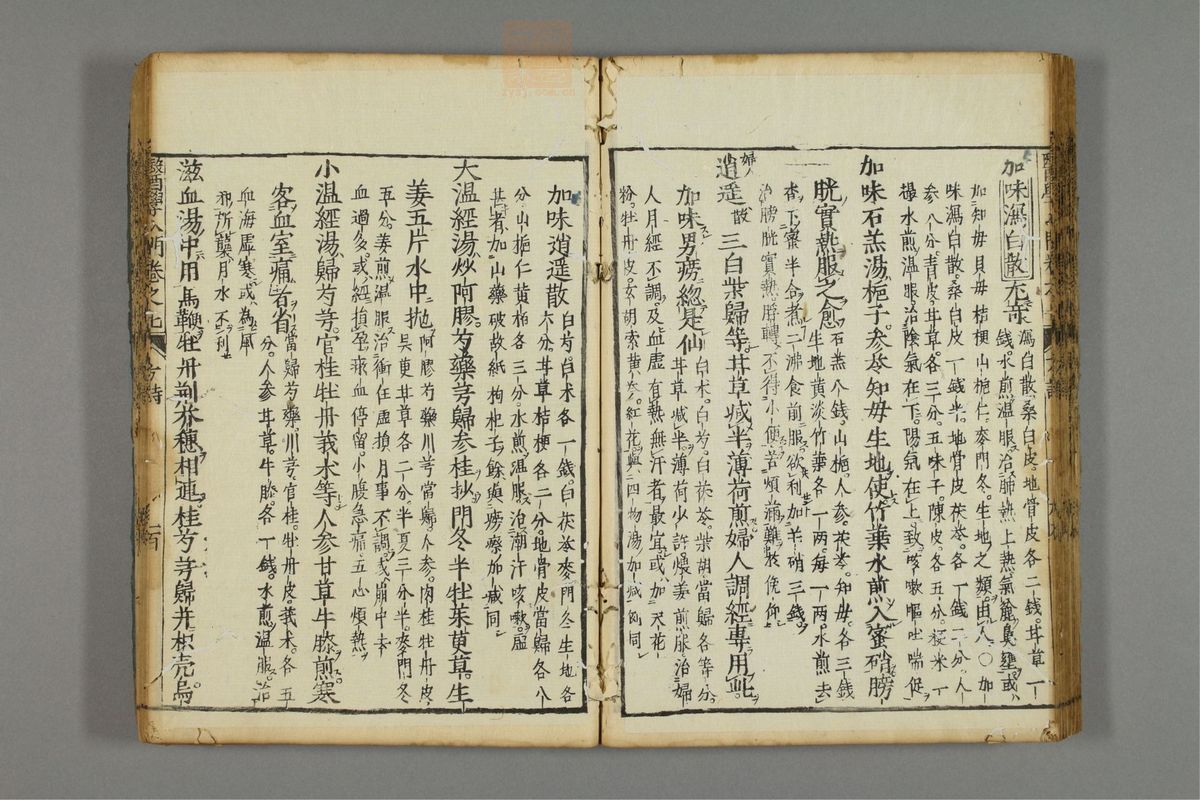 加味瀉白散
瀉白散桑白皮地骨皮各二錢甘草一
錢水煎温服治肺熱上熱氣麄鼻壅或
加知母貝母桔梗山梔仁麥門冬生地之類由人〇加
味瀉白散桑白皮一錢半地骨皮茯苓各一錢二分人
參八分青皮甘草各三分五味子陳皮各五分粳米一
撮水煎温服治陰氣在下陽氣在上致咳嗽嘔吐喘促
加味石羔湯梔子參苓知母生地使竹葉水煎入蜜硝膀
胱實熱服之愈
石羔八錢山梔人參茯苓知母各三錢
生地黄淡竹葉各一兩每一兩水煎去
查下蜜半合煮二沸食前服欲利加芒硝三錢
治膀胱實熱脬轉不得小便苦煩滿難於俛仰
婦人
逍遥散
三白柴歸等甘草減半薄荷煎婦人調經專用此
加味男癆緫是仙
白术白芍白茯苓柴胡當歸各等分
甘草減半薄荷少許煨姜煎服治婦
人月經不調及血虚有熱無汗者最宜或加天花
粉牡丹皮玄胡索黄芩紅花與四物湯加減例同
加味逍遥散
白芍白术各一錢白茯苓麥門冬生地各
六分甘草桔梗各二分地骨皮當歸各八
分山梔仁黄栢各三分水煎温服治潮汗咳嗽虚
甚者加山藥破故紙枸杞子餘與癆瘵加減同
大温經湯炒阿膠芍藥芎歸參桂抄門冬半牡茱萸草生
姜五片水中抛
阿膠芍藥川芎當歸人參肉桂牡丹皮
吴茰甘草各二分半夏三分半麥門冬
五分姜煎温服治衝任虚損月事不調或崩中去
血過多或經損孕瘀血停留小腹急痛五心煩熱
小温經湯歸芍芎官桂牡丹莪术等人參甘草牛膝煎寒
客血室痛者省
當歸芍藥川芎官桂牡丹皮莪术各五
分人參甘草牛膝各一錢水煎温服治
血海虚寒或為風
邪所襲月水不利
滋血湯中用馬鞭牡丹荆芥穗相連桂芍芎歸并枳壳烏